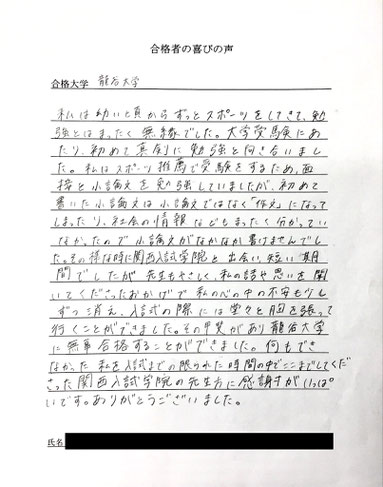 合格者の喜びの声
合格大学 龍谷大学
私は幼い頃からずっとスポーツをしてきて、勉
強とはまったく無縁でした。大学受験にあ
たり、初めて真剣に勉強と向き合いまし
た。私はスポーツ推薦で受験をするため、面
接と小論文を勉強していましたが、初めて
書いた小論文は小論文ではなく「作文」になって
しまったり、社会の情報などもまったく分かってい
なかったので小論文がなかなか書けませんでし
た。その様な時に関西入試学院と出会い、短い期
間でしたが先生もやさしく、私の話や思いを聞
いてくださったおかげで私の心の中の不安も少し
ずつ消え、入試の際には堂々と胸を張って
行くことができました。その甲斐があり龍谷大学
に無事合格することができました。何もでき
なかった私を入試までの限られた時間の中でここまでしてくだ
さった関西入試学院の先生方に感謝すがいっぱ
いです。ありがとうございました。
氏名